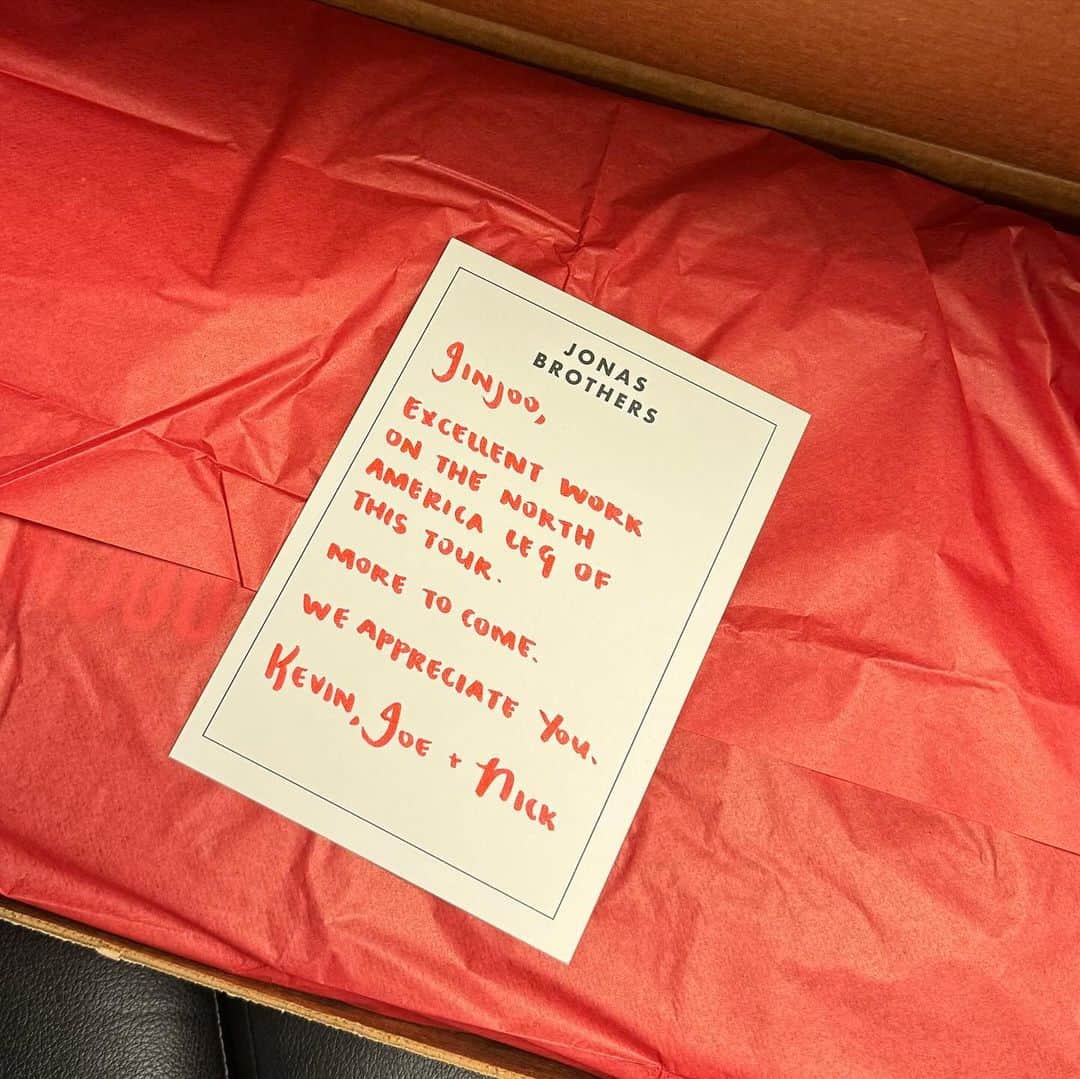 JONAS
BROTHERS
Jinjoo,
EXCELLENT WORK
ON THE NORTH
AMERICA LEG OF
THIS TOUR.
MORE TO COME.
WE APPRECIATE YOU.
KEVIN, JOE + NICK